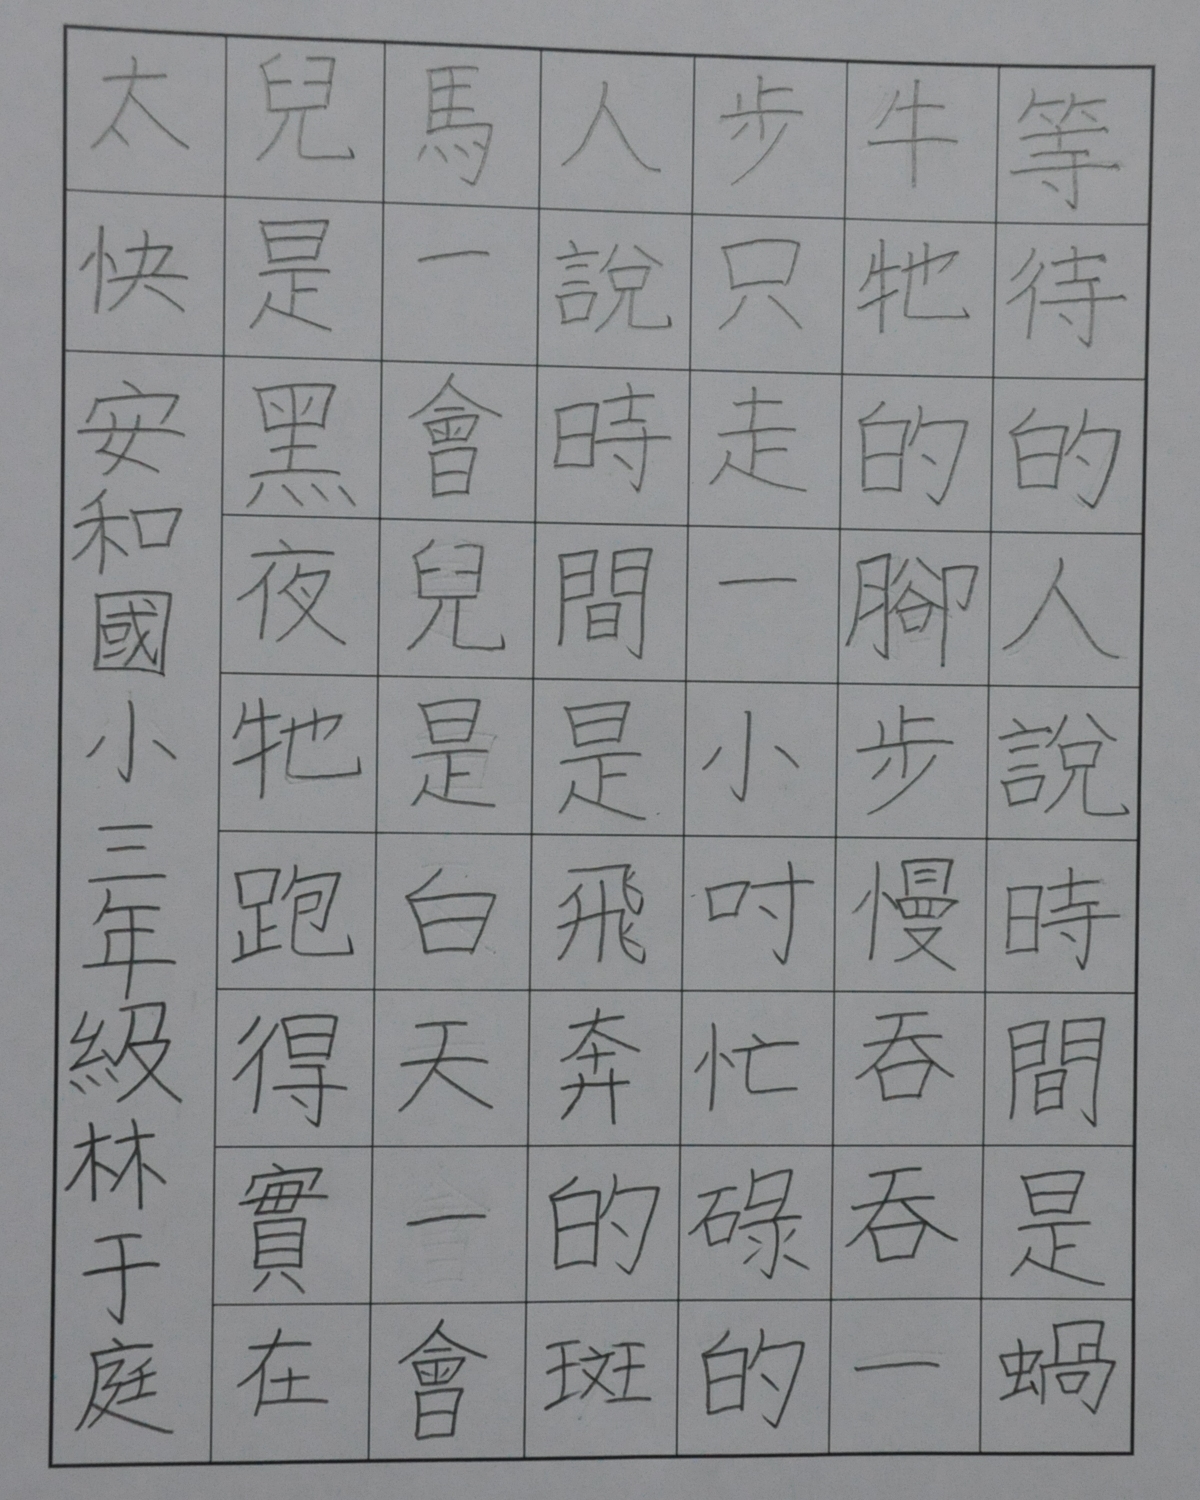 等待的人說時間是蝸
牛牠的腳步慢吞吞一
步只走一小吋忙碌的
人說時間是飛奔的斑
馬一會兒是白天一會
兒是黑夜牠跑得實在
太快
安和國小三年級林于庭